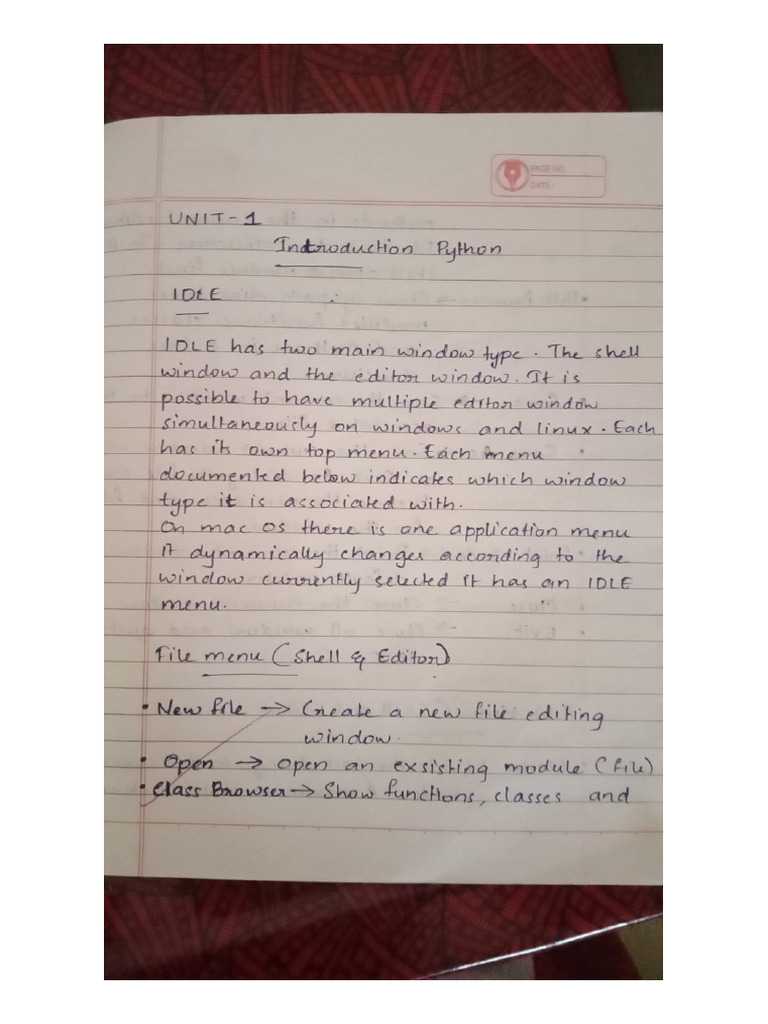 PAGE NO.
DATE:
UNIT-1
Indtroduction Python
IDLE
IDLE has two main window type. The shell
window and the editor window. It is
possible to have multiple editor window
simultaneously on windows and linux. Each
has its own top menu. Each menu
documented below indicates which window
type it is associated with.
On mac os there is one application menu
It dynamically changes according to the
window currently selected It has an IDLE
menu.
File menu (Shell & Editor)
• New file → Create a new file editing
window.
• Open → open an exsisting module (file)
• Class Browser → Show functions, classes and